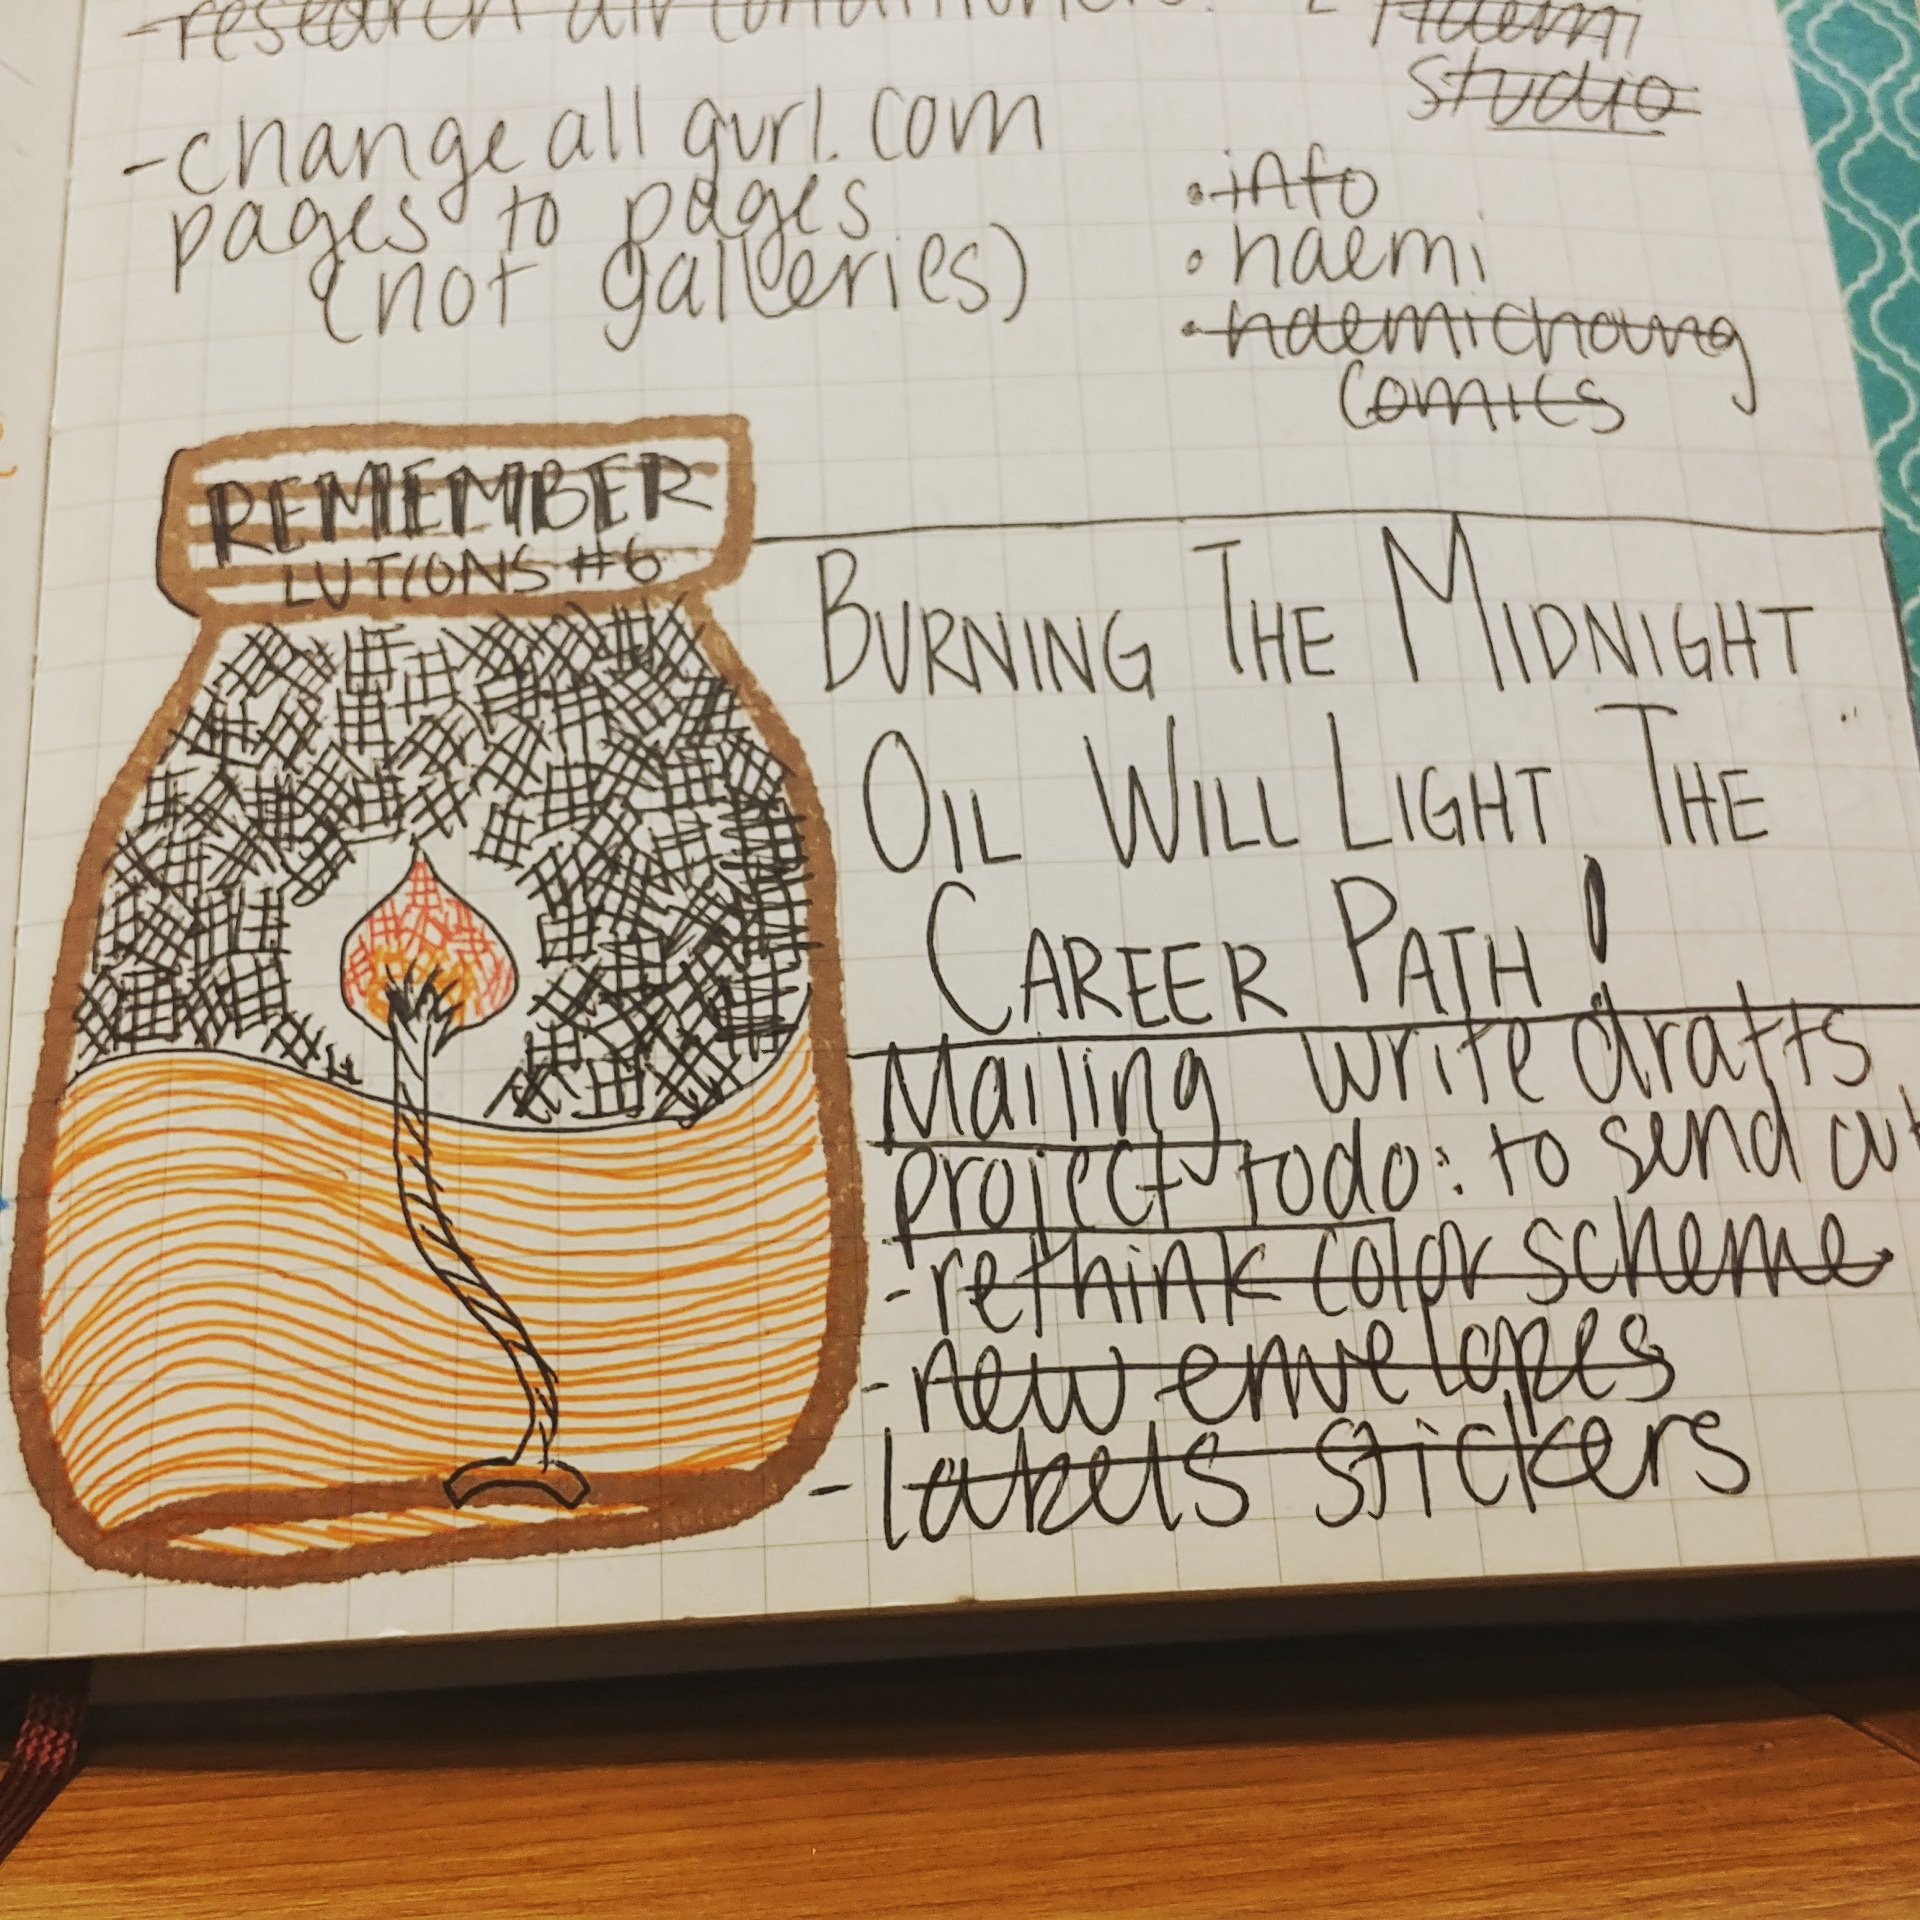 - research air conditioners!
Haemi
studio
- change all gurl.com
pages to pages
(not galleries)
• info
• haemi
• haemichaung
comics
REMEMBER
LUTIONS #6
BURNING THE MIDNIGHT
OIL WILL LIGHT THE
CAREER PATH!
Mailing write drafts
project todo: to send out
- rethink color scheme
- new envelopes
- labels stickers